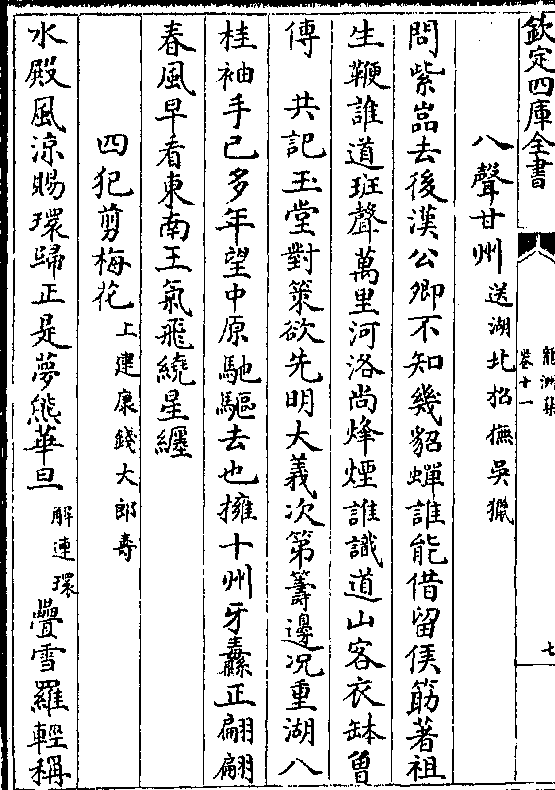 欽定四庫全書
龍洲集
卷十一
七
八聲甘州送湖北招撫吳獵
問紫嵓去後漢公卿不知幾貂蟬誰能借留侯筯著祖
生鞭誰道班聲萬里河洛尚烽煙誰識道山客衣缽曾
傳　共記玉堂對策欲先明大義次第籌邊况重湖八
桂袖手已多年望中原馳驅去也擁十州牙纛正翩翩
春風早看東南王氣飛繞星纏
四犯剪梅花上建康錢大郎壽
水殿風涼賜環歸正是夢熊華旦解連環疊雪羅輕稱